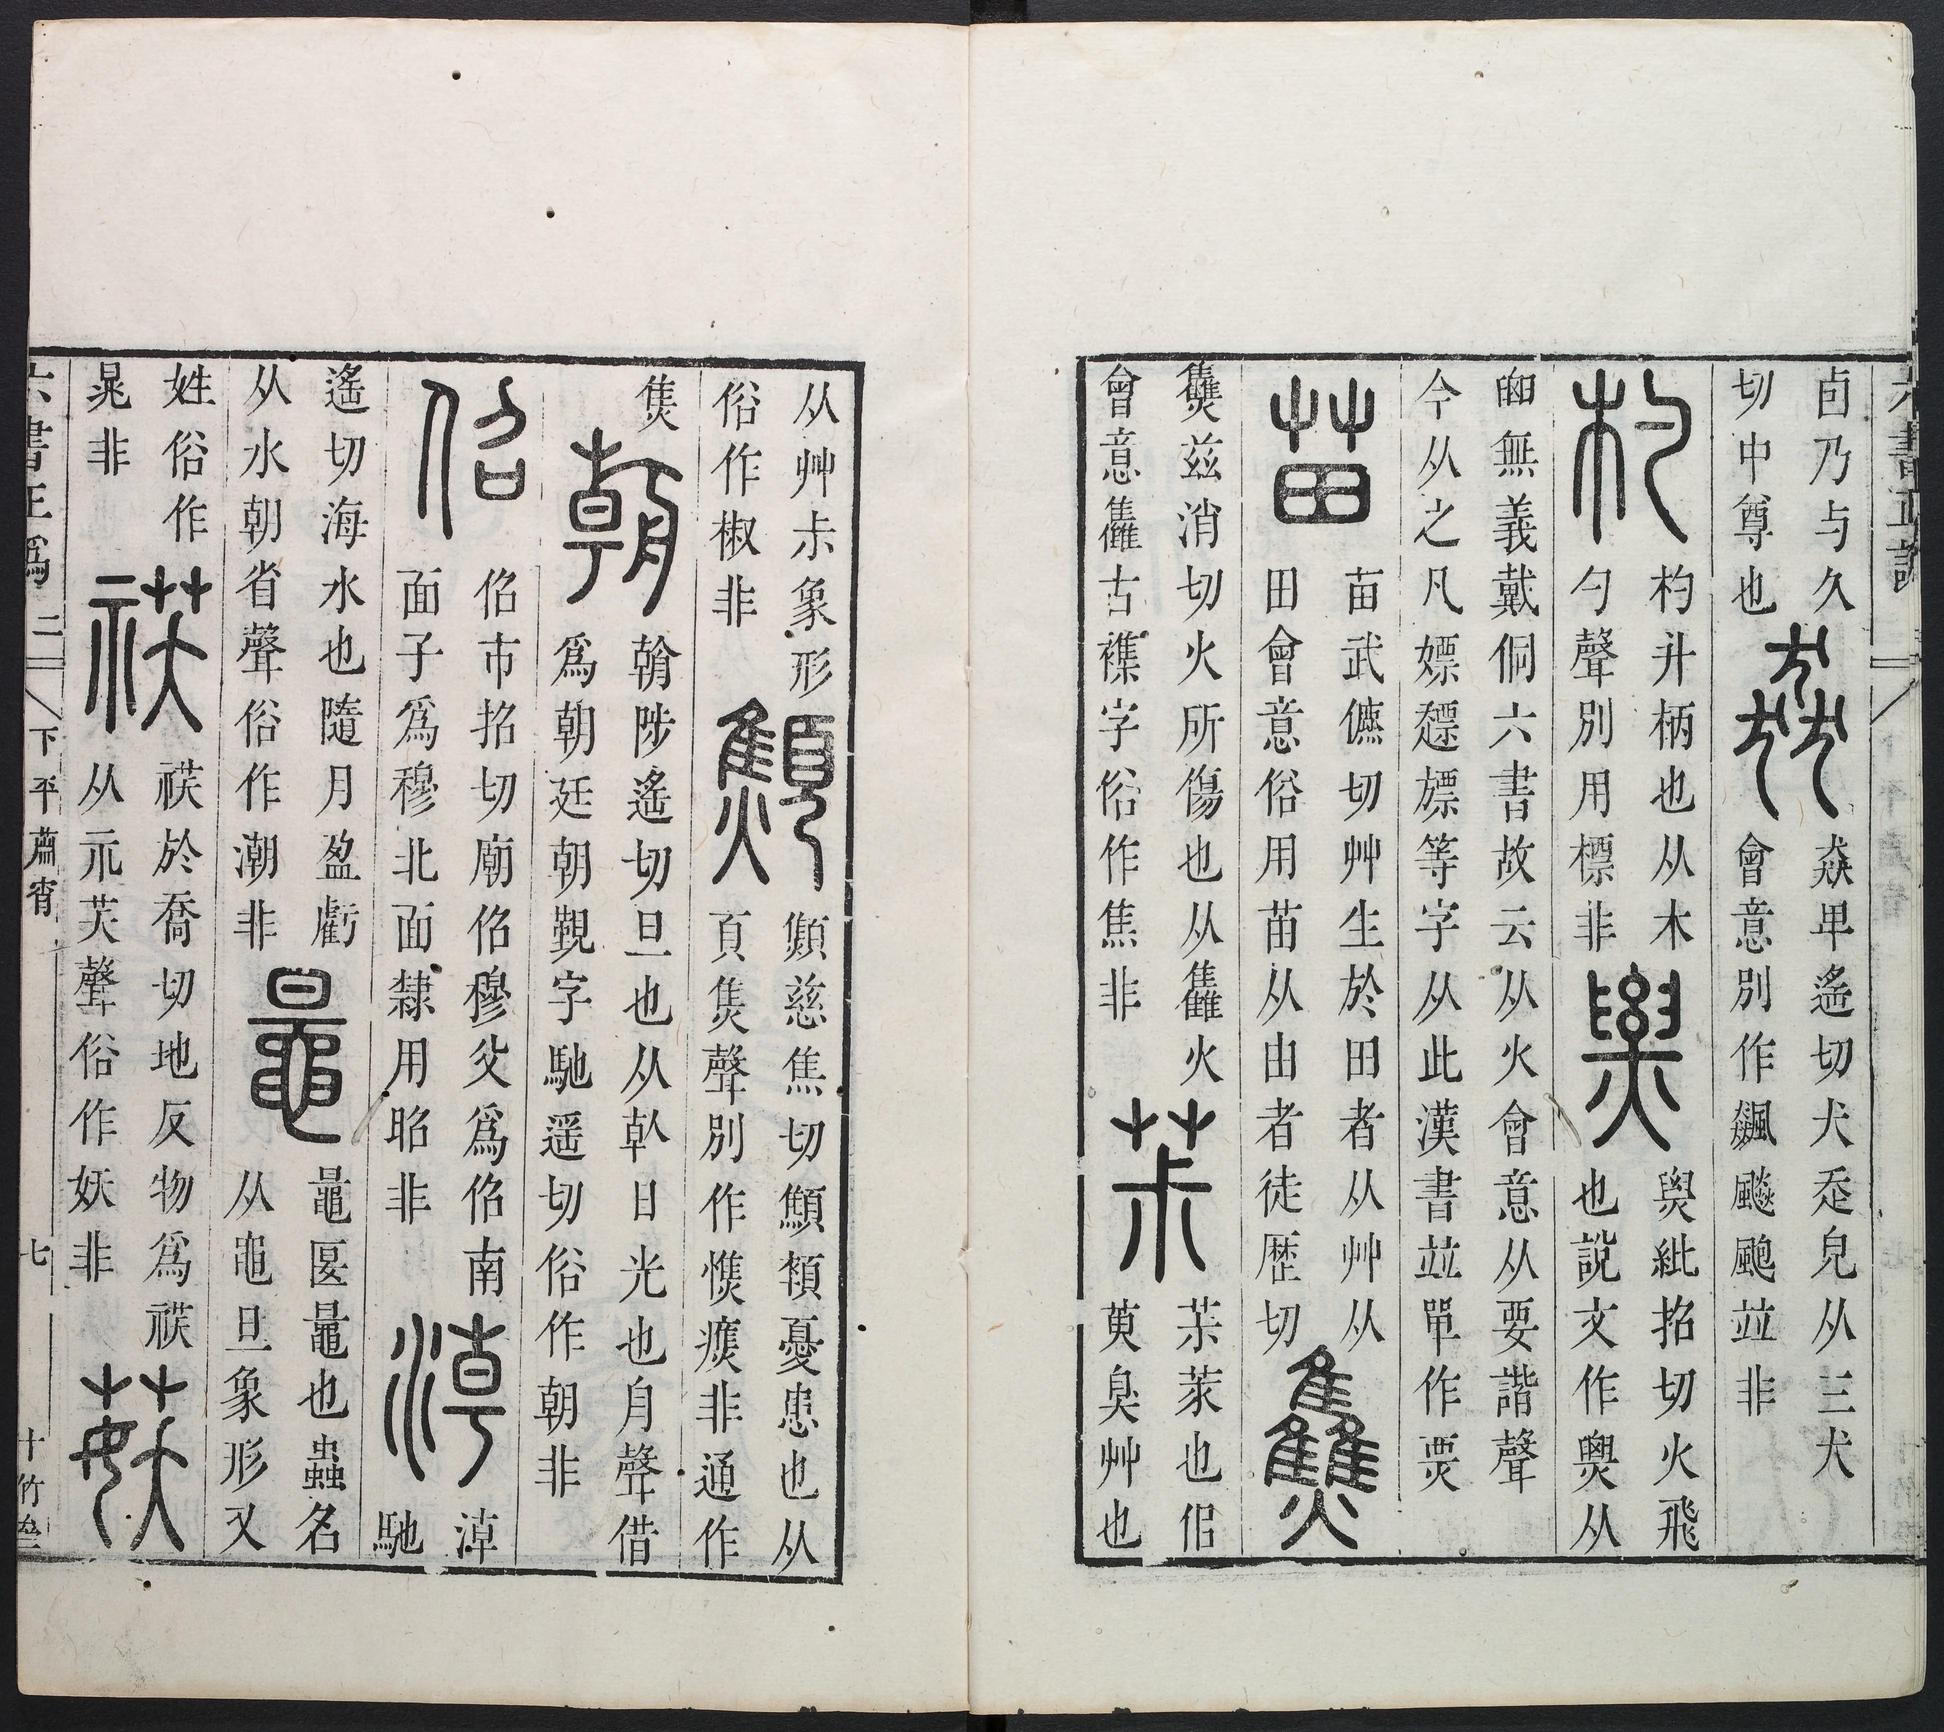 卤乃与久
切中尊也
猋
猋卑遙切犬走皃从三犬
會意別作飆飈颮並非
杓
杓斗柄也从木
勺聲別用標非
㶾紕招切火飛
也說文作㷠从
囟無義戴侗六書故云从火會意从要諧聲
今从之凡嫖瞟旚等字从此漢書並單作票
苗
苗武儦切艸生於田者从艸从
田會意俗用苗从由者徒歷切
䨊兹消切火所傷也从雥火
會意雥古襍字俗作焦非
茮
茮莍也佀
萸臭艸也
从艸尗象形
俗作椒非
顦
顦慈焦切顦顇憂患也从
頁焦聲別作憔癄非通作
焦
朝
朝陟遙切旦也从倝日光也舟聲借
爲朝廷朝覲字馳遥切俗作朝非
佋
佋市招切廟佋穆父爲佋南
面子爲穆北面隸用昭非
淖
淖馳
遙切海水也隨月盈虧
从水朝省聲俗作潮非
鼂
鼂匽鼂也蟲名
从黽旦象形又
姓俗作
晁非
祅
䄏於喬切地反物爲䄏
从示芺聲俗作妖非
六書正爲 二 下平蕭宵 七 十竹
六書正譌